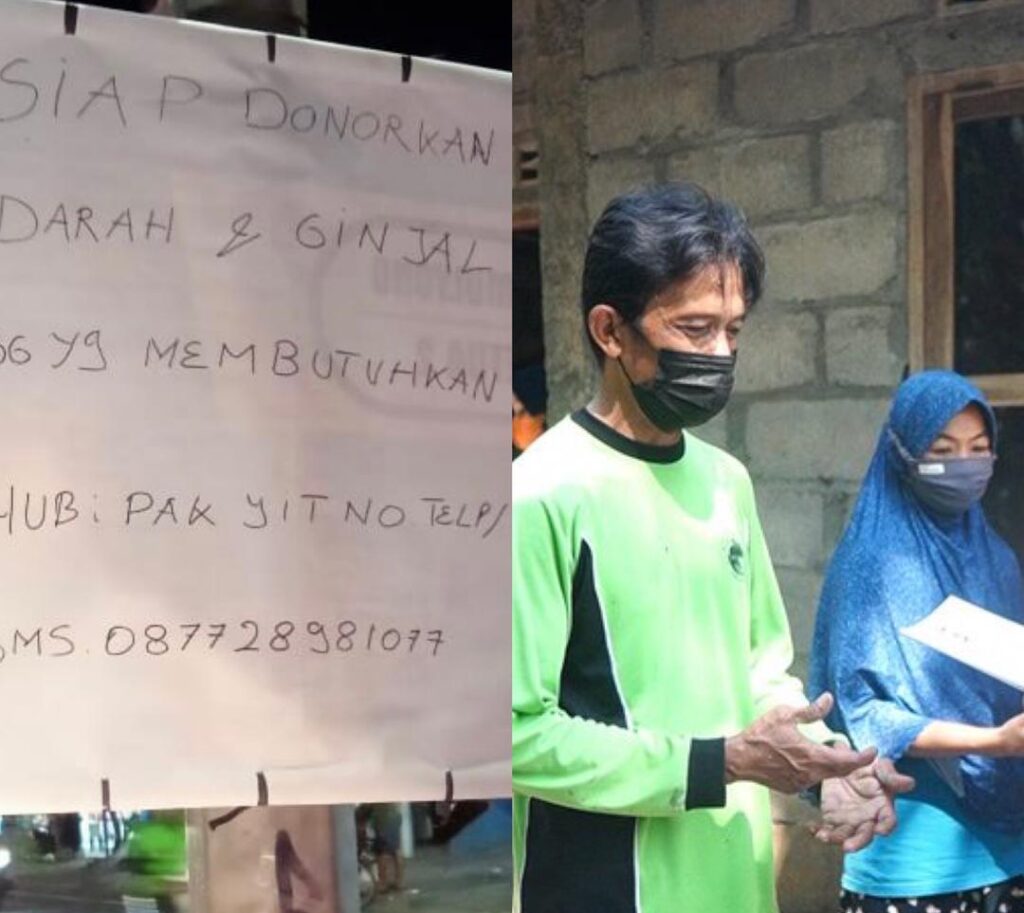 SIAP DONORKAN
DARAH & GINJAL
YG MEMBUTUHKAN
HUB: PAK YIT NO TELP/
SMS. 087728981077